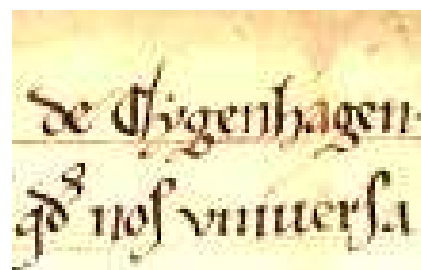 de Cygenhagen.
qdˢ nos vniuersa